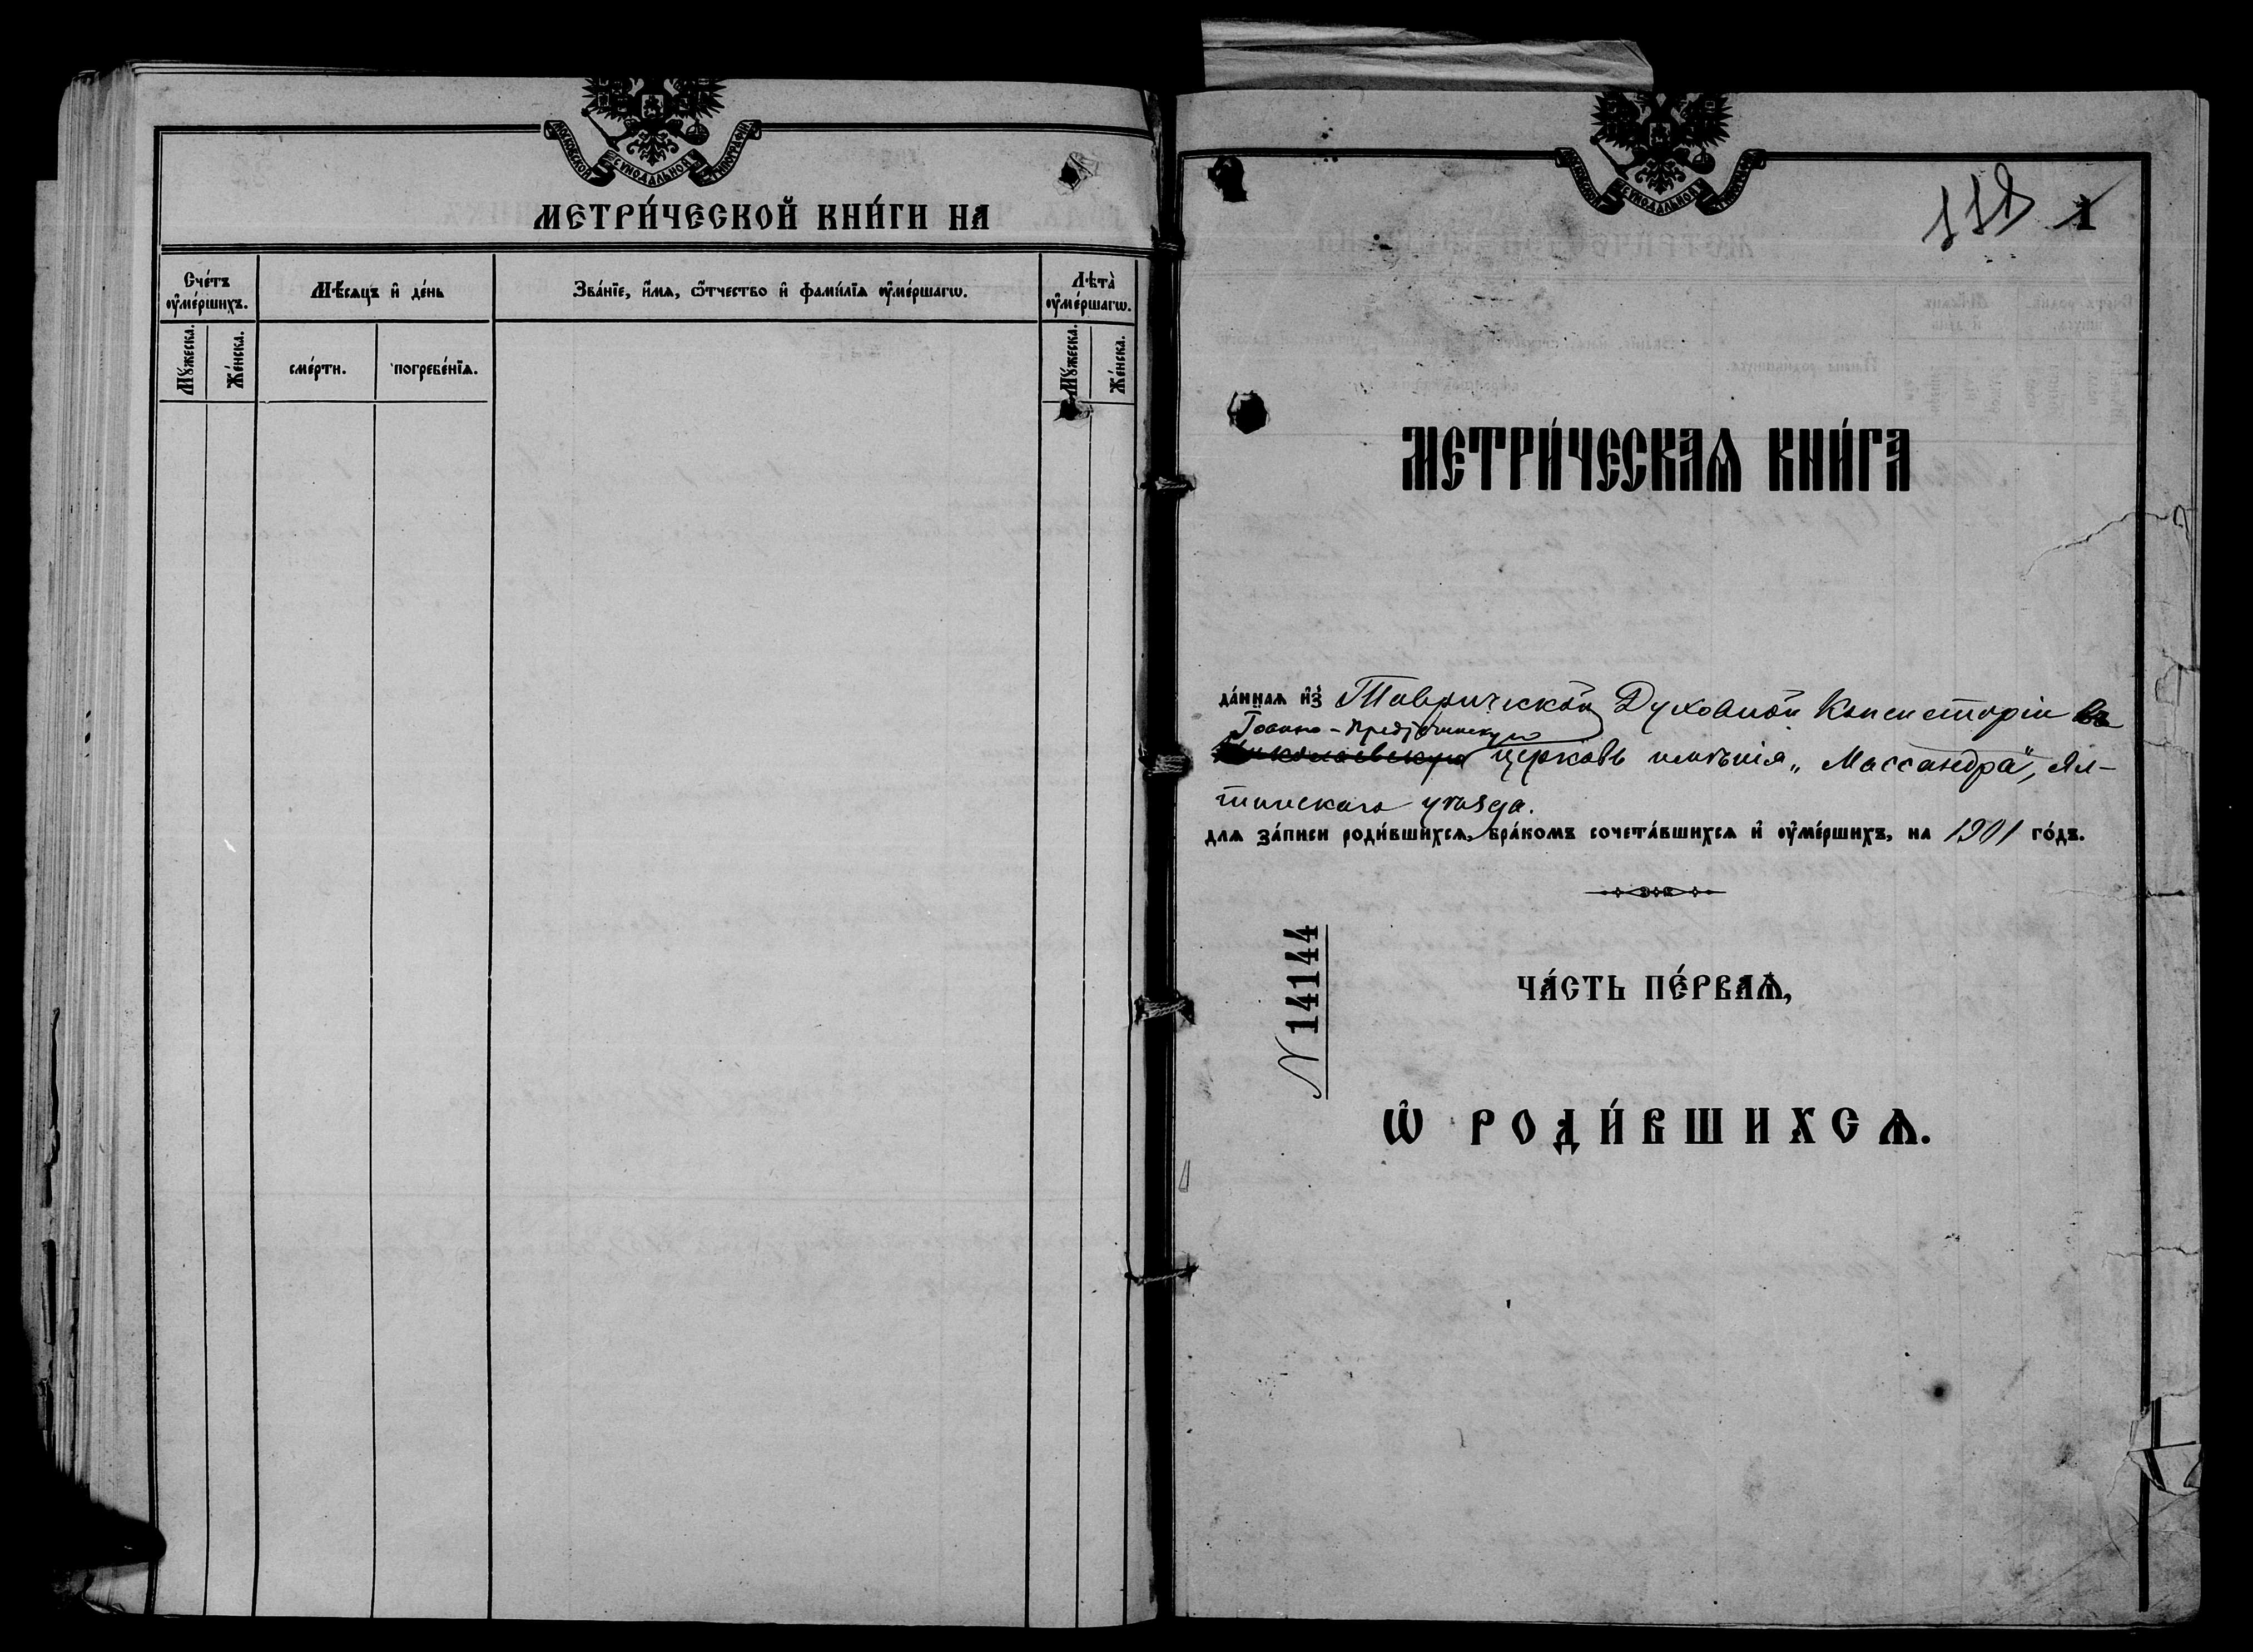 МОСКОВСКОЙ СѴНОДАЛЬНОЙ ТИПОГРАФІИ
МЕТРИ́ЧЕСКОЙ КНИ́ГИ НА
Сче́тъ ᲂу҆ме́ршихъ.
Мѣ́сяцъ и҆ де́нь
Зва́нїе, и҆́мѧ, ѻ҆́тчество и҆ фами́лїѧ ᲂу҆ме́ршагѡ.
Лѣта̀ ᲂу҆ме́ршагѡ.
Мꙋ́жеска.
Же́нска.
сме́рти.
погребе́нїѧ.
Мꙋ́жеска.
Же́нска.
МОСКОВСКОЙ СѴНОДАЛЬНОЙ ТИПОГРАФІИ
1
МЕТРИ́ЧЕСКАѦ КНИ́ГА
да́ннаѧ и҆з̾ Таврической Духовной Консисторіи въ
Іоанно-Предтеченскую
Николаевскую церковь имѣнія „Массандра", Ял-
тинскаго уѣзда.
длѧ за́писи роди́вшихсѧ, бра́комъ сочета́вшихсѧ и҆ ᲂу҆ме́ршихъ, на 1901 го́дъ.
N 14144
ЧА́СТЬ ПЕ́РВАѦ,
Ѡ҆ РОДИ́ВШИХСѦ.